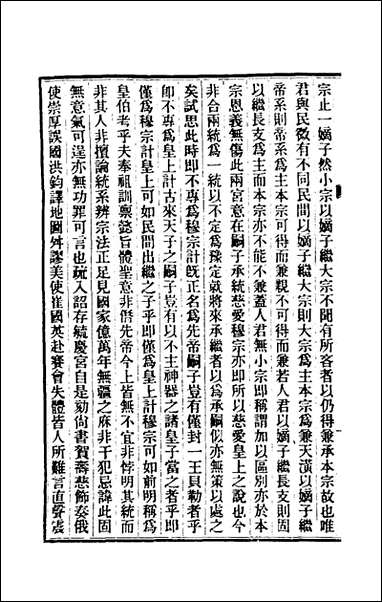 宗止一嫡子然小宗以嫡子繼大宗不聞有所吝者以仍得兼承本宗故也唯
君與民微有不同民間以嫡子繼大宗則大宗爲主本宗爲兼天潢以嫡子繼
帝系則帝系爲主本宗可得而兼親不可得而兼若人君以嫡子繼長支則固
以繼長支爲主而本宗亦不能不兼蓋人君無小宗即稱謂加以區别亦於本
宗恩義無傷此兩宮意在嗣子承統慈愛穆宗亦即所以慈愛皇上之說也今
非合兩統爲一統以不定爲豫定就將來承繼者以爲承嗣似亦無策以處之
矣試思此時即不專爲穆宗計旣正名爲先帝嗣子豈有僅封一王貝勒者乎
即不專爲皇上計古來天子之嗣子豈有以不主神器之諸皇子當之者乎即
僅爲穆宗計皇上可如民間出繼之子乎即僅爲皇上計穆宗可如前明稱爲
皇伯考乎夫奉祖訓稟懿旨體聖意非僭先帝今上皆無不宜非悖明其統而
非其人非擅論統系辨宗法正足見國家億萬年無疆之庥非干犯忌諱此固
無意氣可逞亦無功罪可言也疏入詔存毓慶宮自是劾尚書賀壽慈飾奏俄
使崇厚誤國洪鈞譯地圖舛謬美使崔國英赴賽會失體皆人所難言直聲震